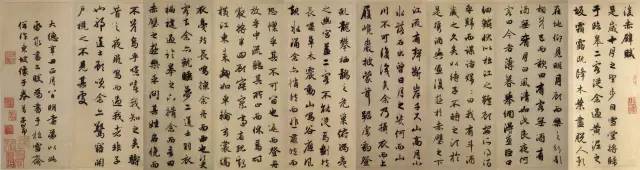 後赤壁賦
是歲十月之望步自雪堂將歸
于臨皋二客從余過黃泥之
坂霜露既降木葉盡脫人影
在地仰見明月顧而樂之行歌
相答已而歎曰有客無酒有
酒無肴月白風清如此良夜何
客曰今者薄暮舉網得魚巨口
細鱗狀似松江之鱸顧安所得酒
乎歸而謀諸婦婦曰我有斗酒
藏之久矣以待子不時之須於
是攜酒與魚復遊於赤壁之下
江流有聲斷岸千尺山高月小
水落石出曾日月之幾何而江山
不可復識矣余乃攝衣而上
履巉巖披蒙茸踞虎豹登
虬龍攀栖鶻之危巢俯馮夷
之幽宮蓋二客不能從焉劃然
長嘯草木震動山鳴谷應風
起水涌余亦悄然而悲肅然而
恐凜乎其不可留也反而登舟
放乎中流聽其所止而休焉時
夜將半四顧寂寥適有孤鶴
橫江東來翅如車輪玄裳縞
衣戛然長鳴掠余舟而西也須臾
客去余亦就睡夢二道士羽衣
翩躚過臨皋之下揖余而言曰
赤壁之遊樂乎問其姓名俛而
不答嗚呼噫嘻我知之矣疇
昔之夜飛鳴而過我者非子也
邪道士顧笑余亦驚悟開
戶視之不見其處
大德辛丑正月八日明遠弟以此
紙求書二賦為書于松雪齋
併作東坡像于卷首子昂